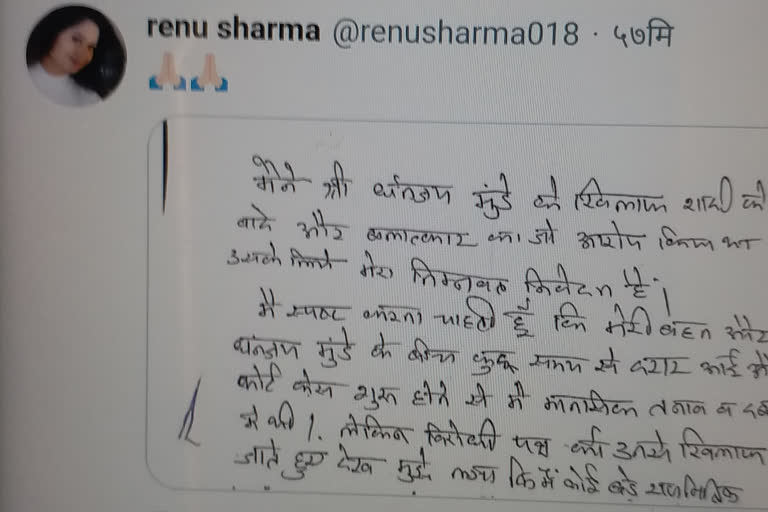 renu sharma @renusharma018 · ५७मि
मैने श्री धनंजय मुंडे के खिलाफ शादी के
वादे और बलात्कार का जो आरोप किया था
उसके लिये मेरा निम्नवत निवेदन है।
मै स्पष्ट करना चाहती हूँ कि मेरी बहन और
धनंजय मुंडे के बीच कुछ समय से दरार आई
कोर्ट केस शुरू होने से मै मानसिक तनाव व
मे थी। लेकिन विरोधी पक्ष को उनके खिलाफ
जाते हुए देख मुझे लगा कि मैं कोई बडे राजनितिक